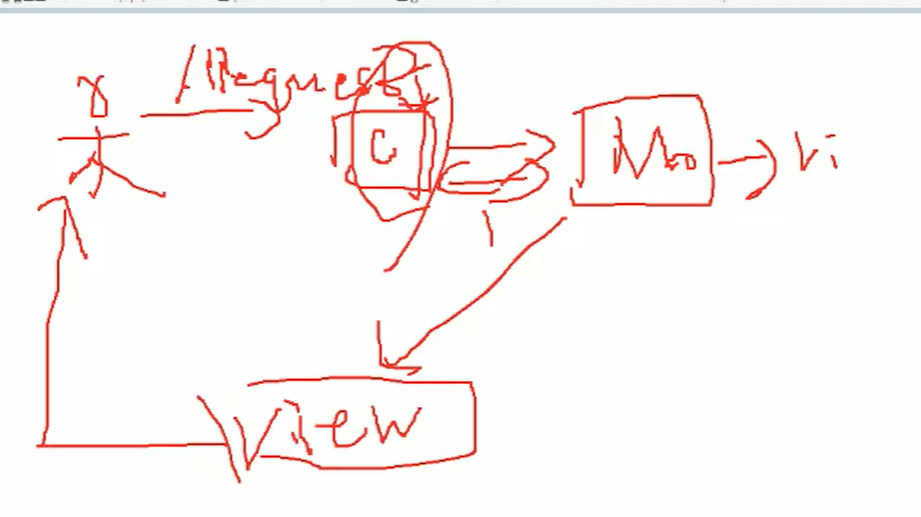 Request
C
Mo
Vi
View